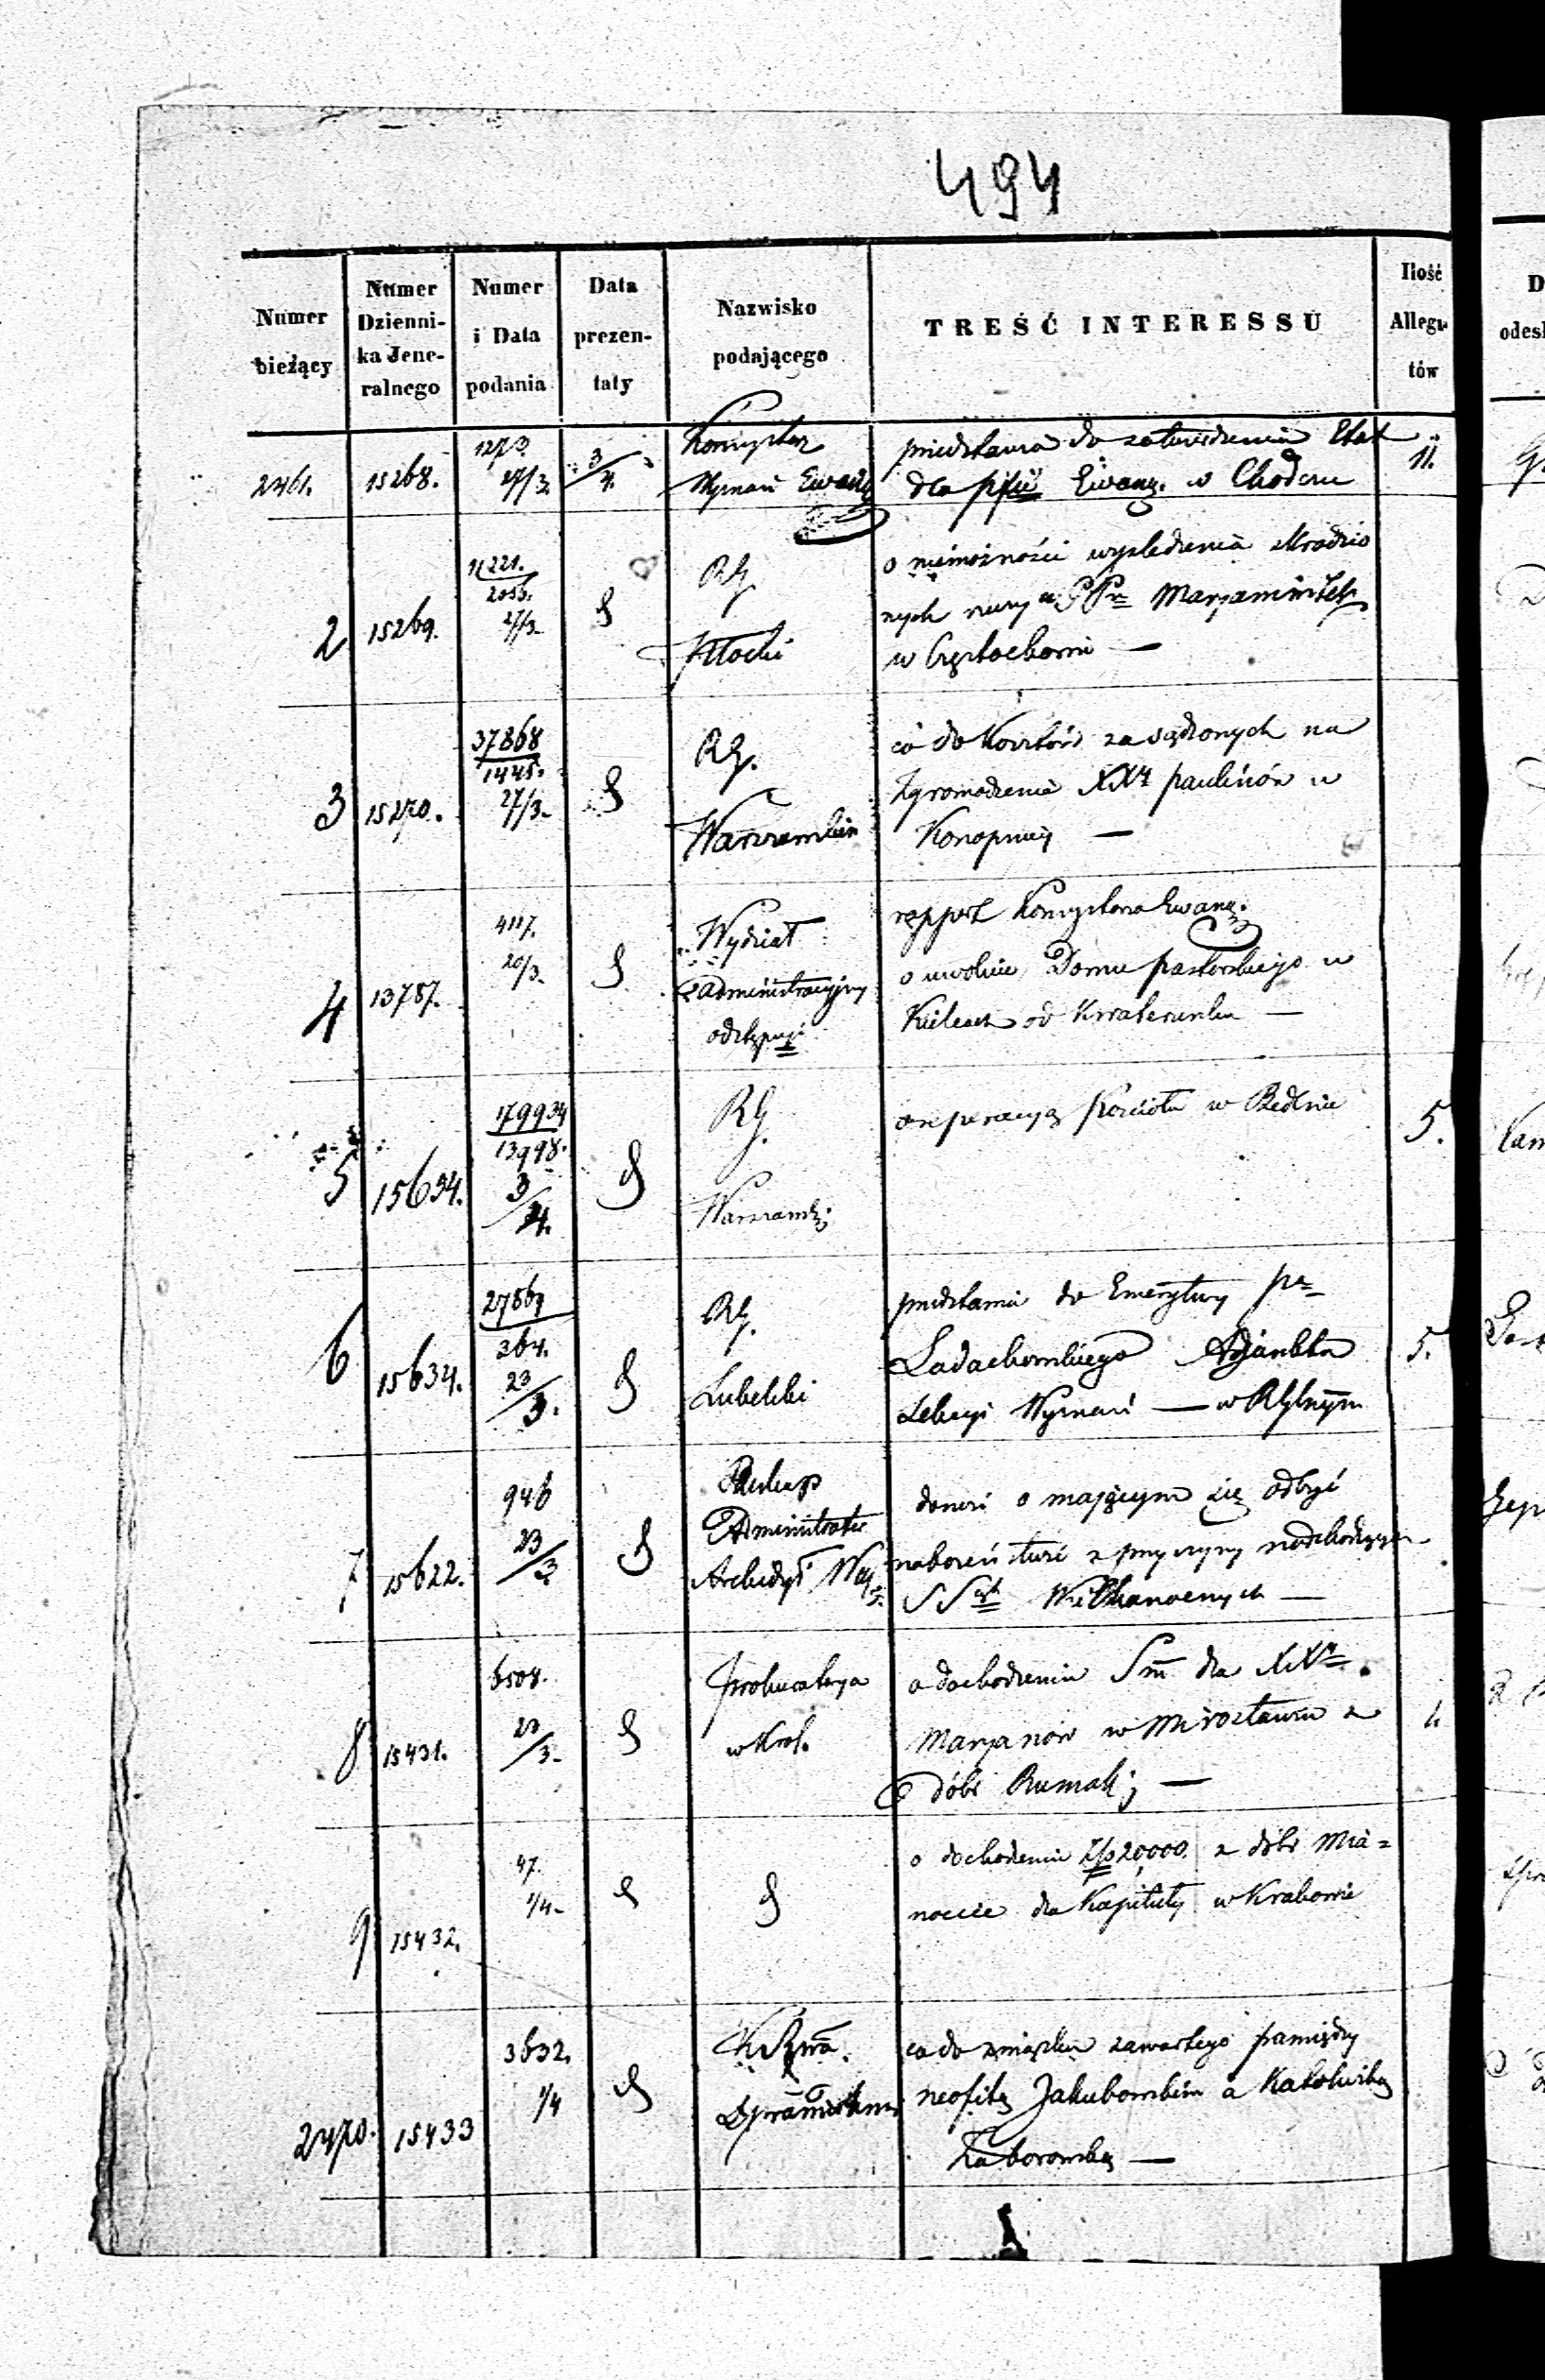 494
Numer bieżący
Numer Dzienni-ka Jene-ralnego
Numer i Data podania
Data prezen-taty
Nazwisko podającego
TREŚĆ INTERESSU
Ilość Allega-tów
2461. 15268. 1273 27/3. 3/4. Konsystorz
Wyznań Ewang
przedstawia do zatwierdzenia Etat
dla Ewang. w Chodczu
11.
2 15269. 11221. 2055. 27/3. RG
Płocki
o niemożności wyśledzenia skradzio
nych rzeczy u PP Maryawitek
w Częstochowie —
3 15270. 37868 1445. 27/3. RG.
Warszawski
co do kosztów zasądzonych na
Zgromadzenie XX Paulinów w
Konopnicy —
4 13787. 4117. 20/3. Wydział
administracyjny
odstępuje
rapport Konsystorza Ewang.
o uwolnie Domu pastorskiego w
Kielcach od Kwaterunku —
5 15634. 179934 13998. 3/4. RG.
Warszawski
o reperacyą Kościoła w Bedlnie
5.
6 15634. 27567 364. 23/3. RG.
Lubelski
przedstawia do Emerytury
Ladachowskiego Adjunkta
Sekcyi Wyznań — w RG
5.
7 15622. 946 23/3 Biskup
Administrator
Archidyec
donosi o mającym się odbyć
nabożeństwie z przyczyny nadchodzących
Wielkanocnych —
8 15431. 6508. 23/3. Prokuratorya
w Król.
o dochodzeniu Sm dla XX
Maryanów w Mirosławiu z
dóbr Rumak —
9 15432. 47. 1/4. o dochodzeniu Zp 20,000. z dóbr Mia=
nocice dla Kapituły w Krakowie
2470. 15433 3632. 1/4
Sprawiedliw
co do związku zawartego pomiędzy
neofitą Jakubowskim a Katoliczką
Zaborowską —